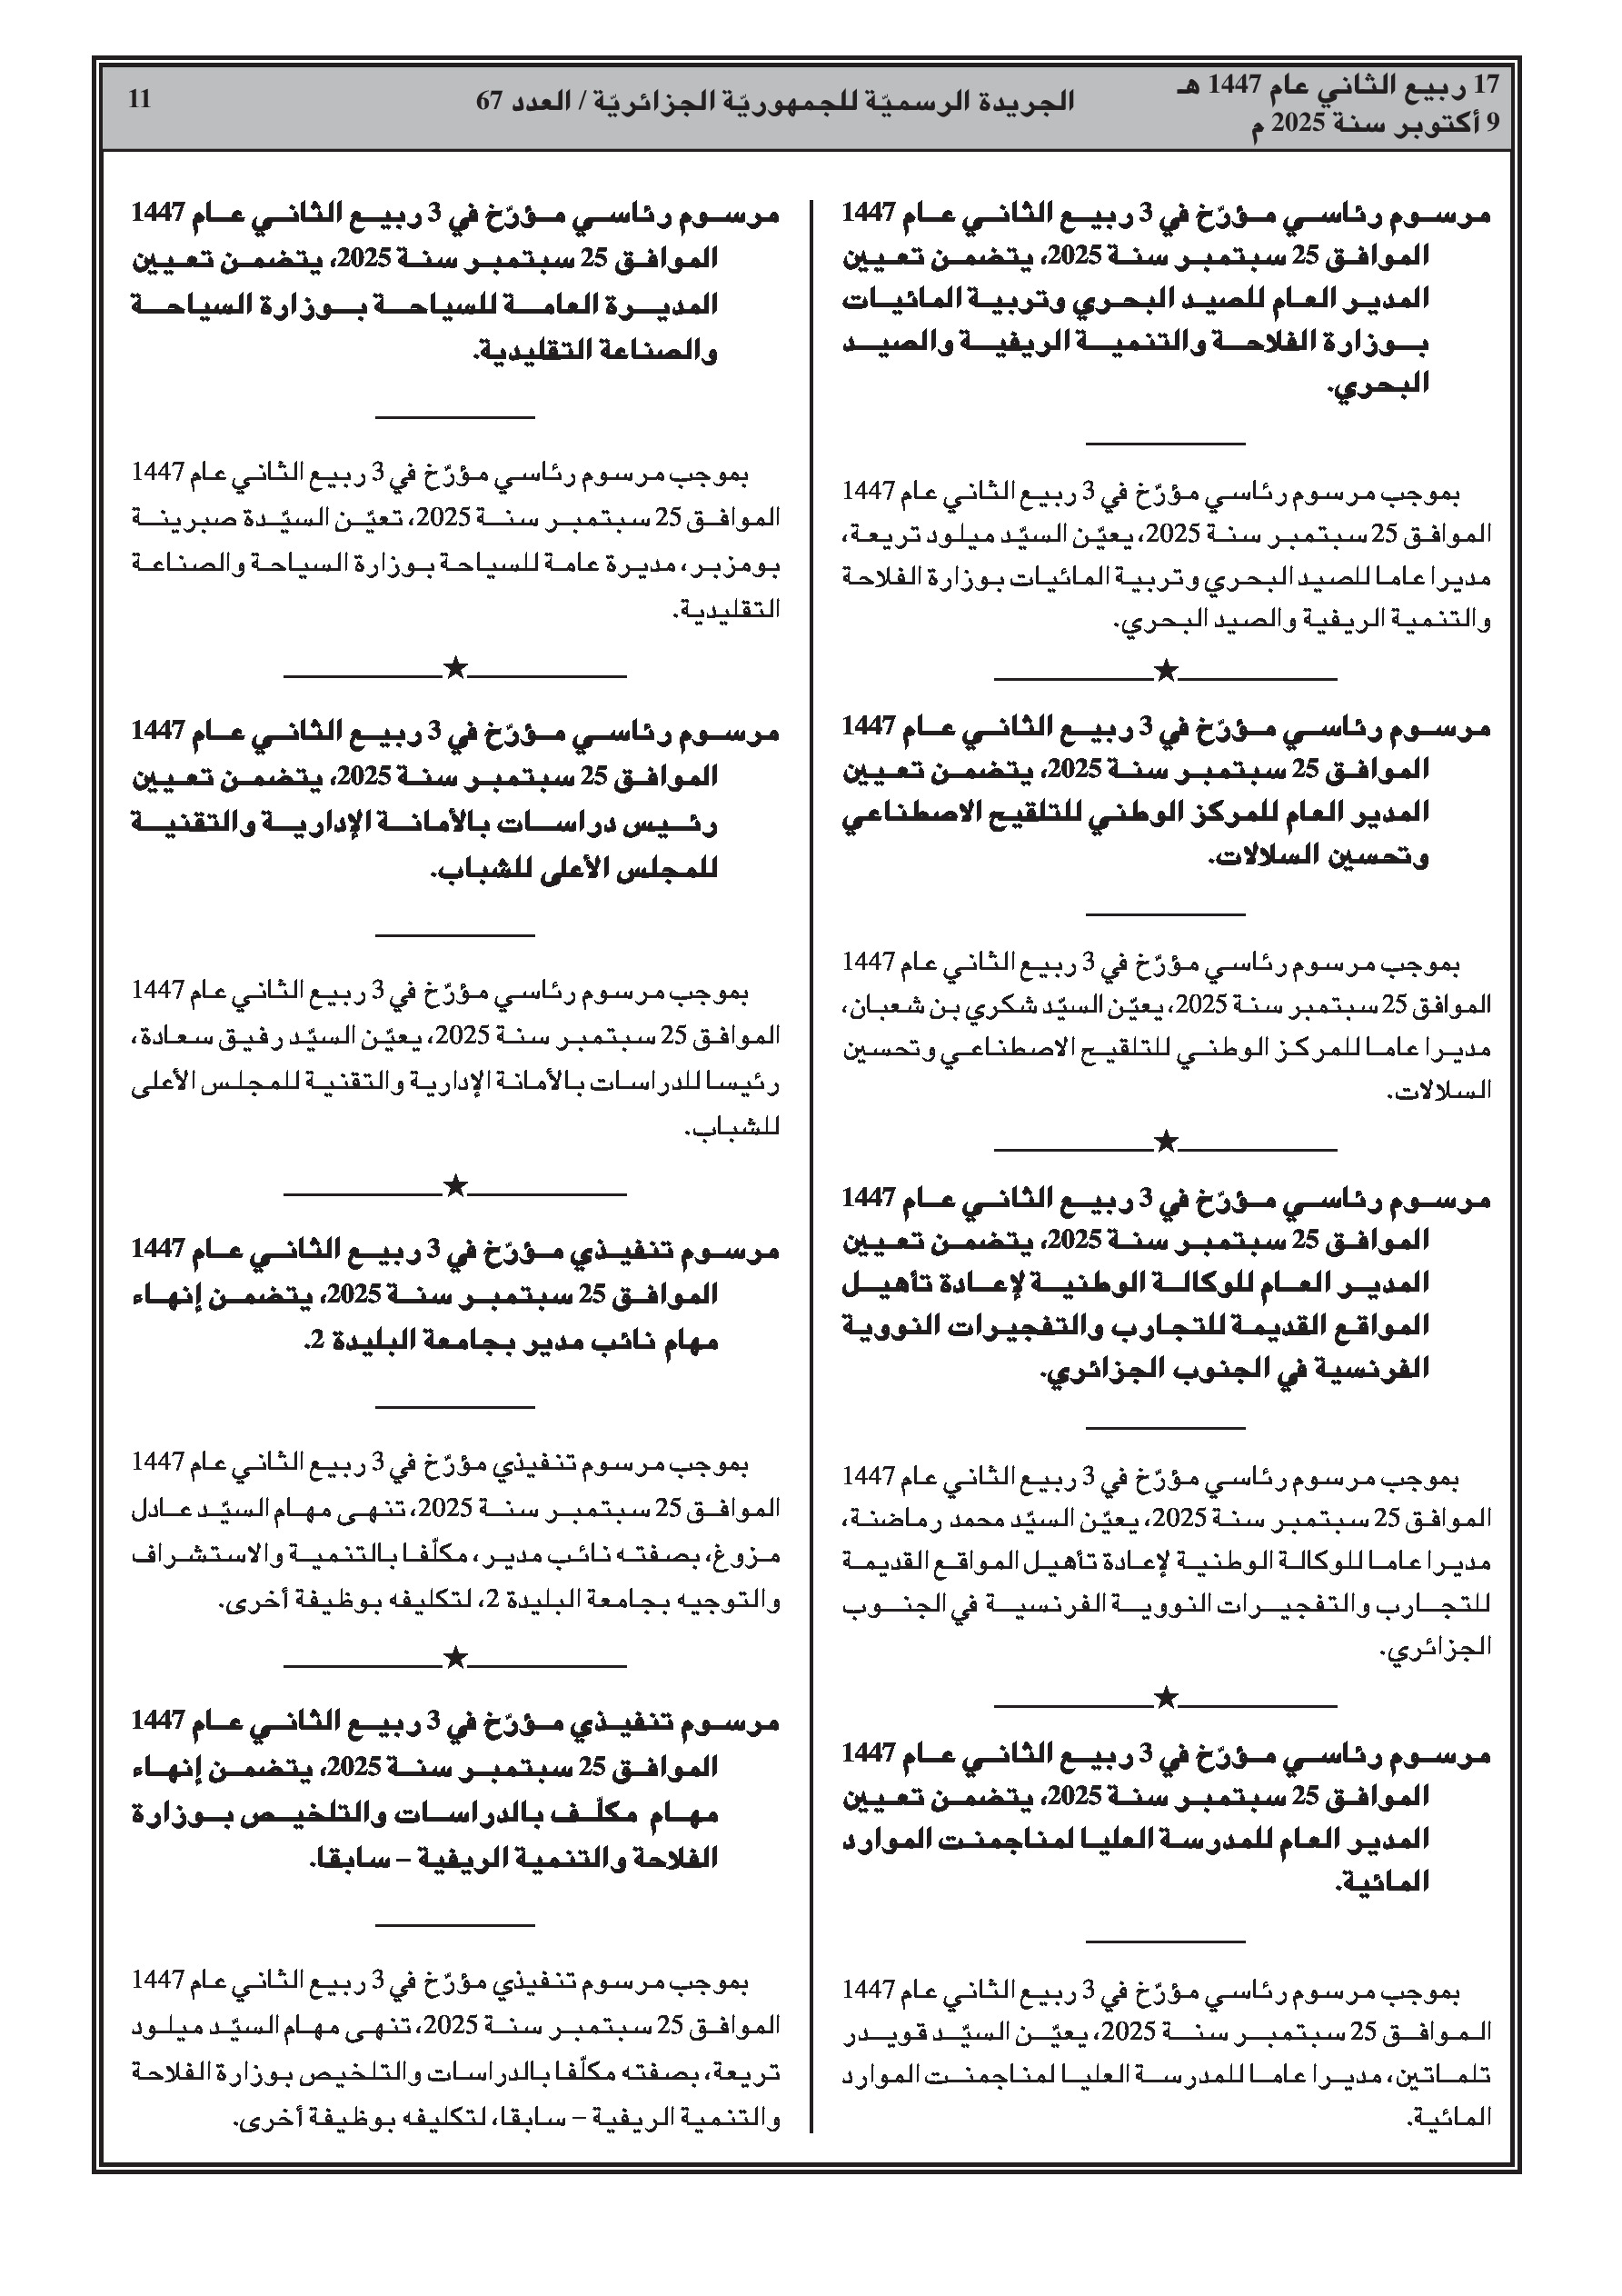 17 ربيع الثاني عام 1447 هـ
9 أكتوبر سنة 2025 م
الجريدة الرسميّة للجمهوريّة الجزائريّة / العدد 67
11
مرسوم رئاسي مؤرّخ في 3 ربيع الثاني عام 1447
الموافق 25 سبتمبر سنة 2025، يتضمن تعيين
المدير العام للصيد البحري وتربية المائيات
بوزارة الفلاحة والتنمية الريفية والصيد
البحري.
بموجب مرسوم رئاسي مؤرّخ في 3 ربيع الثاني عام 1447
الموافق 25 سبتمبر سنة 2025، يعيّن السيّد ميلود تريعة،
مديرا عاما للصيد البحري وتربية المائيات بوزارة الفلاحة
والتنمية الريفية والصيد البحري.
★
مرسوم رئاسي مؤرّخ في 3 ربيع الثاني عام 1447
الموافق 25 سبتمبر سنة 2025، يتضمن تعيين
المدير العام للمركز الوطني للتلقيح الاصطناعي
وتحسين السلالات.
بموجب مرسوم رئاسي مؤرّخ في 3 ربيع الثاني عام 1447
الموافق 25 سبتمبر سنة 2025، يعيّن السيّد شكري بن شعبان،
مديرا عاما للمركز الوطني للتلقيح الاصطناعي وتحسين
السلالات.
★
مرسوم رئاسي مؤرّخ في 3 ربيع الثاني عام 1447
الموافق 25 سبتمبر سنة 2025، يتضمن تعيين
المدير العام للوكالة الوطنية لإعادة تأهيل
المواقع القديمة للتجارب والتفجيرات النووية
الفرنسية في الجنوب الجزائري.
بموجب مرسوم رئاسي مؤرّخ في 3 ربيع الثاني عام 1447
الموافق 25 سبتمبر سنة 2025، يعيّن السيّد محمد رماضنة،
مديرا عاما للوكالة الوطنية لإعادة تأهيل المواقع القديمة
للتجارب والتفجيرات النووية الفرنسية في الجنوب
الجزائري.
★
مرسوم رئاسي مؤرّخ في 3 ربيع الثاني عام 1447
الموافق 25 سبتمبر سنة 2025، يتضمن تعيين
المدير العام للمدرسة العليا لمناجمنت الموارد
المائية.
بموجب مرسوم رئاسي مؤرّخ في 3 ربيع الثاني عام 1447
الموافق 25 سبتمبر سنة 2025، يعيّن السيّد قويدر
تلماتين، مديرا عاما للمدرسة العليا لمناجمنت الموارد
المائية.
مرسوم رئاسي مؤرّخ في 3 ربيع الثاني عام 1447
الموافق 25 سبتمبر سنة 2025، يتضمن تعيين
المديرة العامة للسياحة بوزارة السياحة
والصناعة التقليدية.
بموجب مرسوم رئاسي مؤرّخ في 3 ربيع الثاني عام 1447
الموافق 25 سبتمبر سنة 2025، تعيّن السيّدة صبرينة
بومزبر، مديرة عامة للسياحة بوزارة السياحة والصناعة
التقليدية.
★
مرسوم رئاسي مؤرّخ في 3 ربيع الثاني عام 1447
الموافق 25 سبتمبر سنة 2025، يتضمن تعيين
رئيس دراسات بالأمانة الإدارية والتقنية
للمجلس الأعلى للشباب.
بموجب مرسوم رئاسي مؤرّخ في 3 ربيع الثاني عام 1447
الموافق 25 سبتمبر سنة 2025، يعيّن السيّد رفيق سعادة،
رئيسا للدراسات بالأمانة الإدارية والتقنية للمجلس الأعلى
للشباب.
★
مرسوم تنفيذي مؤرّخ في 3 ربيع الثاني عام 1447
الموافق 25 سبتمبر سنة 2025، يتضمن إنهاء
مهام نائب مدير بجامعة البليدة 2.
بموجب مرسوم تنفيذي مؤرّخ في 3 ربيع الثاني عام 1447
الموافق 25 سبتمبر سنة 2025، تنهى مهام السيّد عادل
مزوغ، بصفته نائب مدير، مكلّفا بالتنمية والاستشراف
والتوجيه بجامعة البليدة 2، لتكليفه بوظيفة أخرى.
★
مرسوم تنفيذي مؤرّخ في 3 ربيع الثاني عام 1447
الموافق 25 سبتمبر سنة 2025، يتضمن إنهاء
مهام مكلّف بالدراسات والتلخيص بوزارة
الفلاحة والتنمية الريفية – سابقا.
بموجب مرسوم تنفيذي مؤرّخ في 3 ربيع الثاني عام 1447
الموافق 25 سبتمبر سنة 2025، تنهى مهام السيّد ميلود
تريعة، بصفته مكلّفا بالدراسات والتلخيص بوزارة الفلاحة
والتنمية الريفية – سابقا، لتكليفه بوظيفة أخرى.